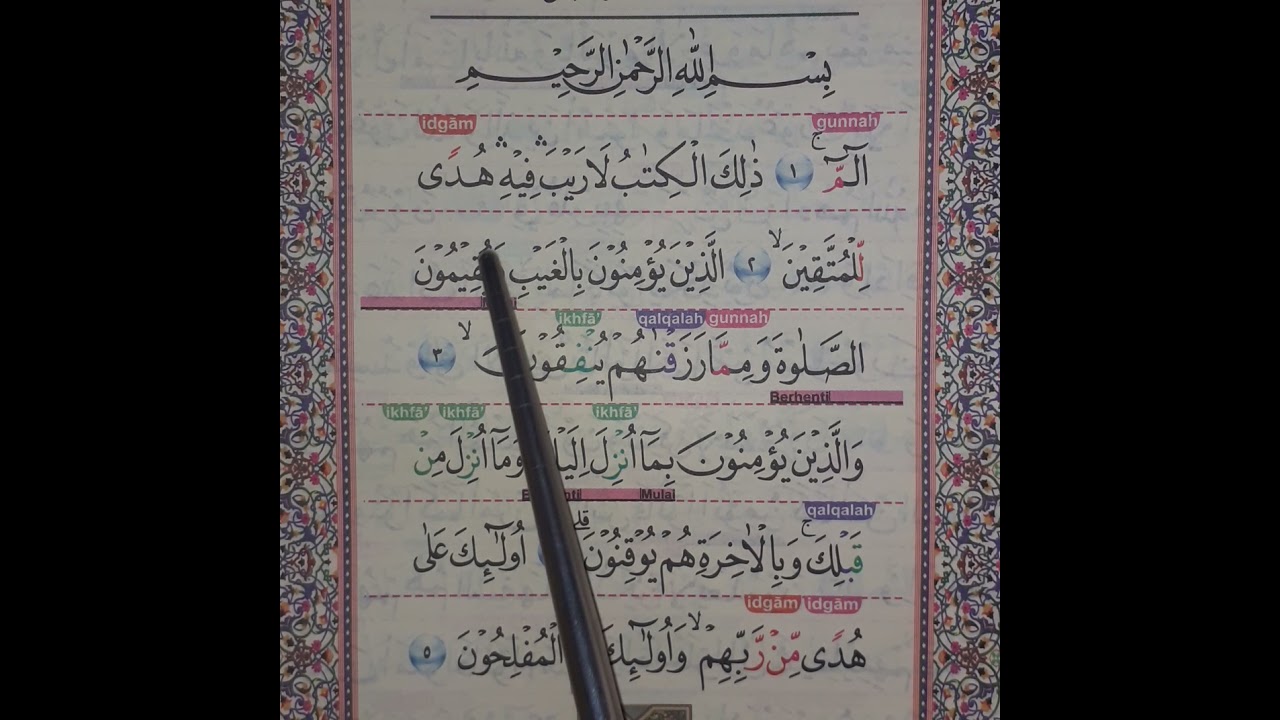 بِسْمِ اللّٰهِ الرَّحْمٰنِ الرَّحِيْمِ
gunnah idgām
الٓمّٓ ۚ ١ ذٰلِكَ الْكِتٰبُ لَا رَيْبَ ۛ فِيْهِ ۛ هُدًى
لِّلْمُتَّقِيْنَ ۙ ٢ الَّذِيْنَ يُؤْمِنُوْنَ بِالْغَيْبِ
gunnah qalqalah ikhfā'
الصَّلٰوةَ وَمِمَّا رَزَقْنٰهُمْ يُنْفِقُوْنَ ۙ ٣
Berhenti
ikhfā' ikhfā' ikhfā'
وَالَّذِيْنَ يُؤْمِنُوْنَ بِمَآ اُنْزِلَ وَمَآ اُنْزِلَ مِنْ
Mulai
qalqalah
قَبْلِكَ ۚ وَبِالْاٰخِرَةِ هُمْ يُوْقِنُوْنَ ۗ اُولٰۤىِٕكَ عَلٰى
idgām idgām
هُدًى مِّنْ رَّبِّهِمْ ۙ وَاُولٰۤىِٕكَ الْمُفْلِحُوْنَ ٥